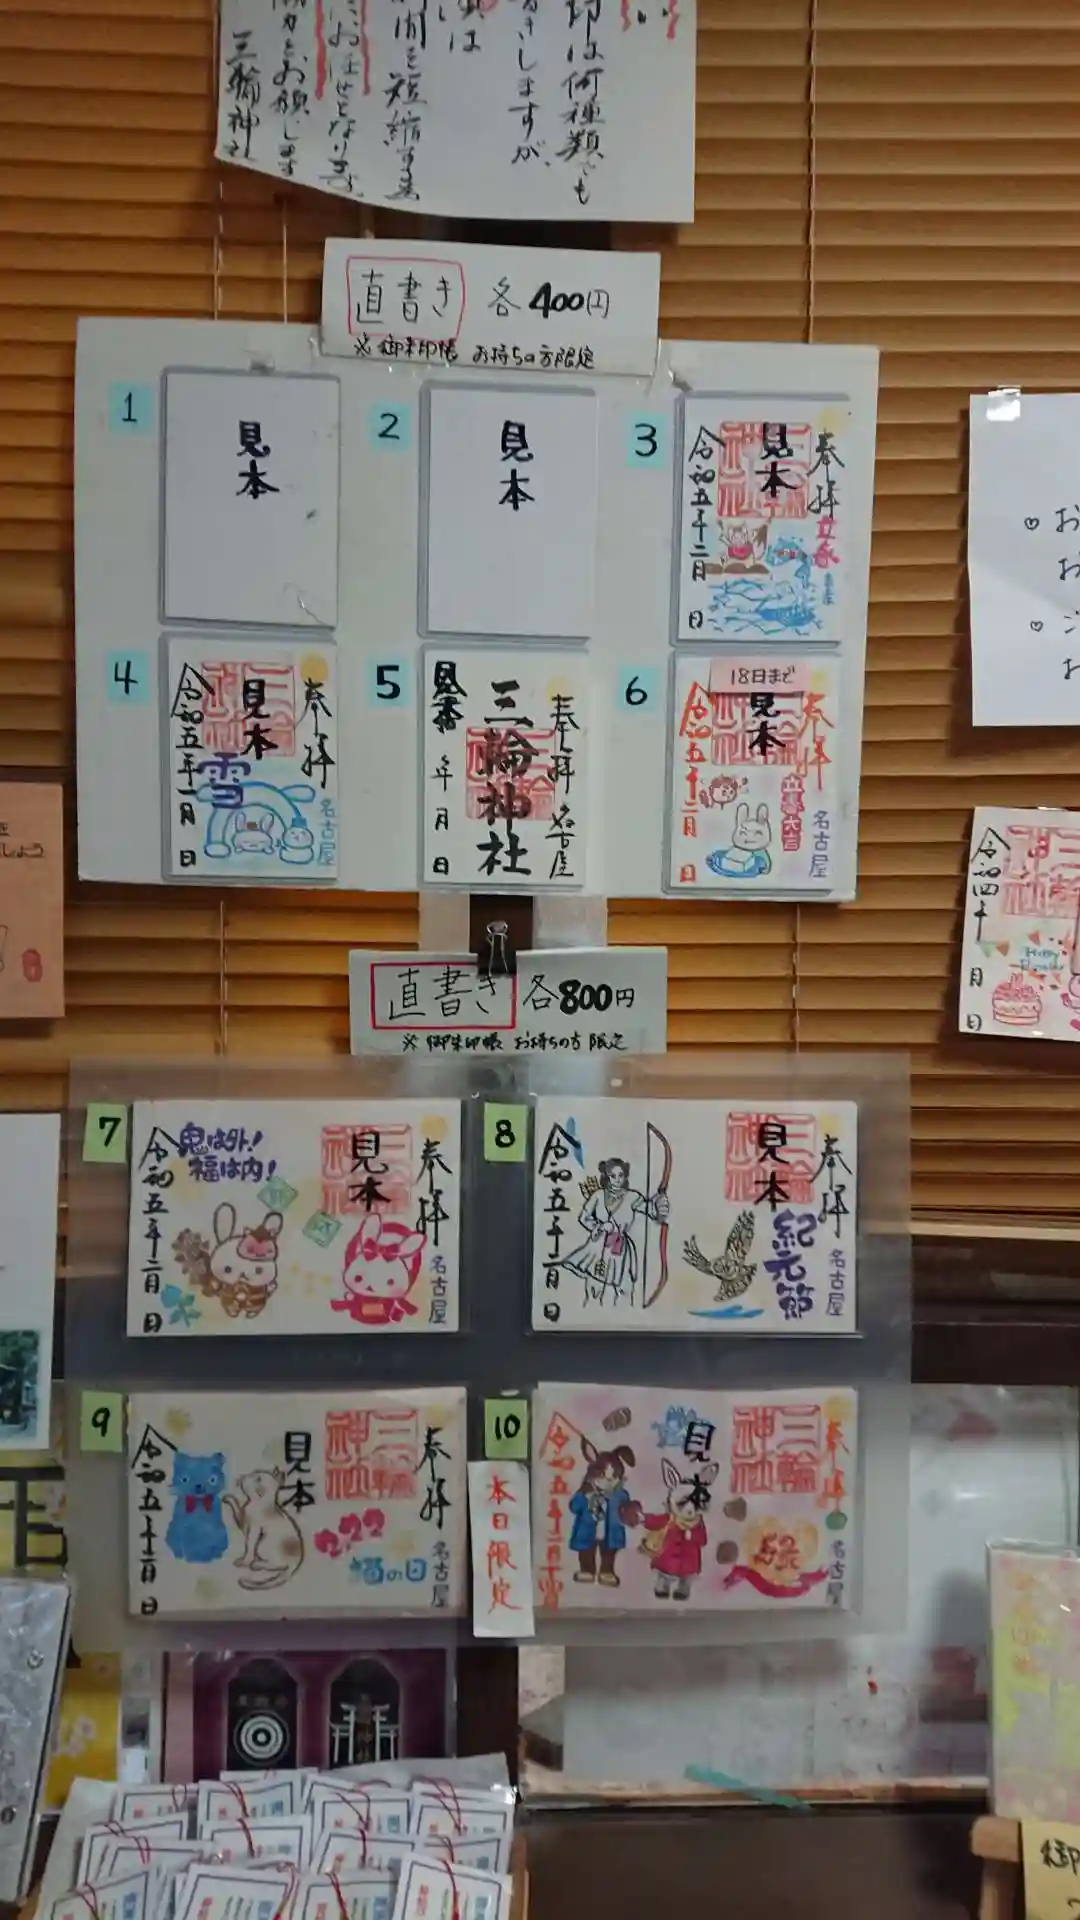 印は何種類でも
きしますが、
は
間を短縮する為
にお任せとなります
協力をお願します
三輪神社
直書き 各400円
※御朱印帳 お持ちの方限定
1
見本
2
見本
3
奉拝
立春
見本
三輪神社
令和五年二月 日
4
奉拝
名古屋
見本
三輪神社
雪
令和五年一月 日
5
奉拝 名古屋
三輪神社
見本
年 月 日
6
18日まで
奉拝
名古屋
立春大吉
見本
三輪神社
令和五年二月 日
直書き 各800円
※御朱印帳 お持ちの方限定
7
奉拝
名古屋
見本
三輪神社
鬼は外!
福は内!
令和五年二月 日
8
奉拝
名古屋
見本
三輪神社
紀元節
令和五年二月 日
9
奉拝
名古屋
三輪神社
見本
222
猫の日
令和五年二月 日
10
本日限定
奉拝
名古屋
三輪神社
見本
縁
令和五年二月十
令和四年 月 日
Happy
御